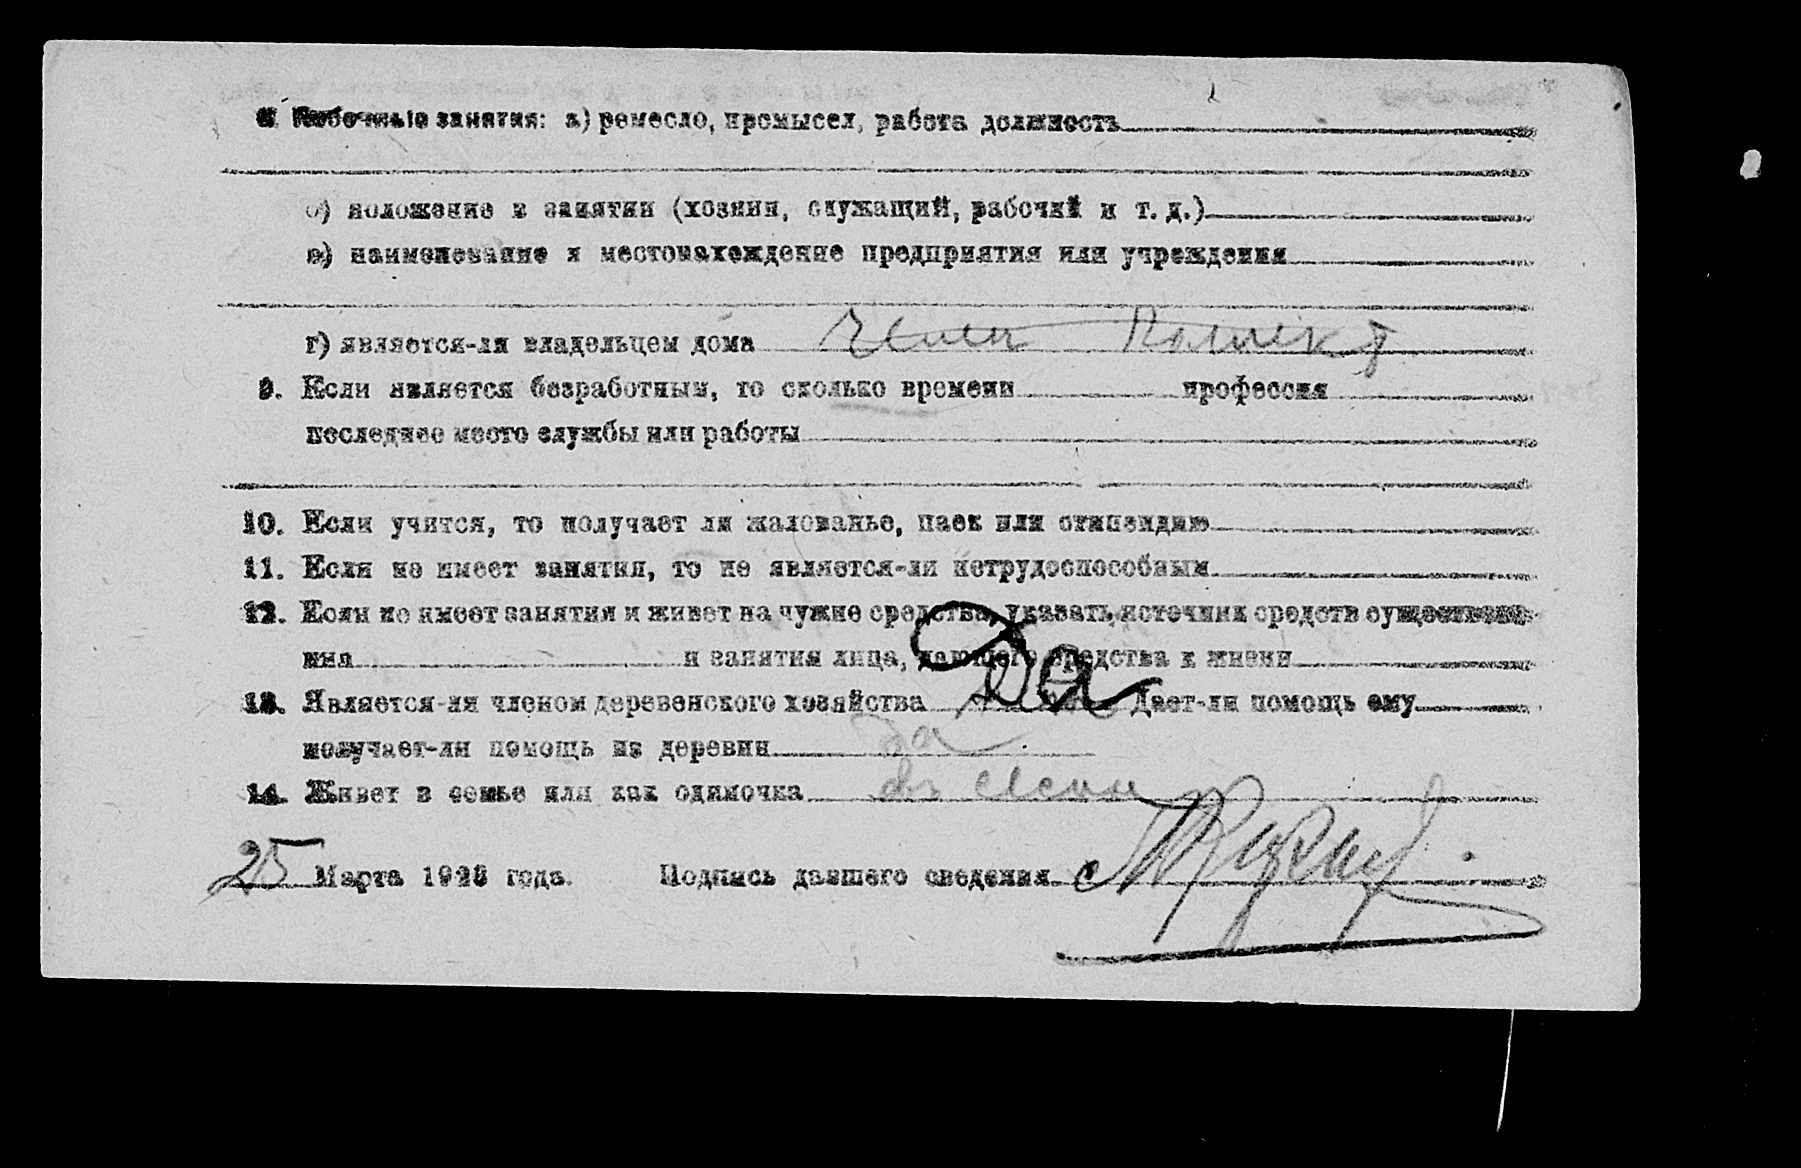 8. Побочные занятия: а) ремесло, промысел, работа должность
б) положение в занятии (хозяин, служащий, рабочий и т. д.)
в) наименование и местонахождение предприятия или учреждения
г) является-ли владельцем дома Член
9. Если является безработным, то сколько времени профессия
последнее место службы или работы
10. Если учится, то получает ли жалованье, паек или стипендию
11. Если не имеет занятия, то не является-ли нетрудоспособным
12. Если не имеет занятия и живет на чужие средства, указать, источник средств существова-
ния и занятия лица, дающего средства к жизни
13. Является-ли членом деревенского хозяйства Да Дает-ли помощь ему
получает-ли помощь из деревни да
14. Живет в семье или как одиночка
25 Марта 1923 года. Подпись давшего сведения